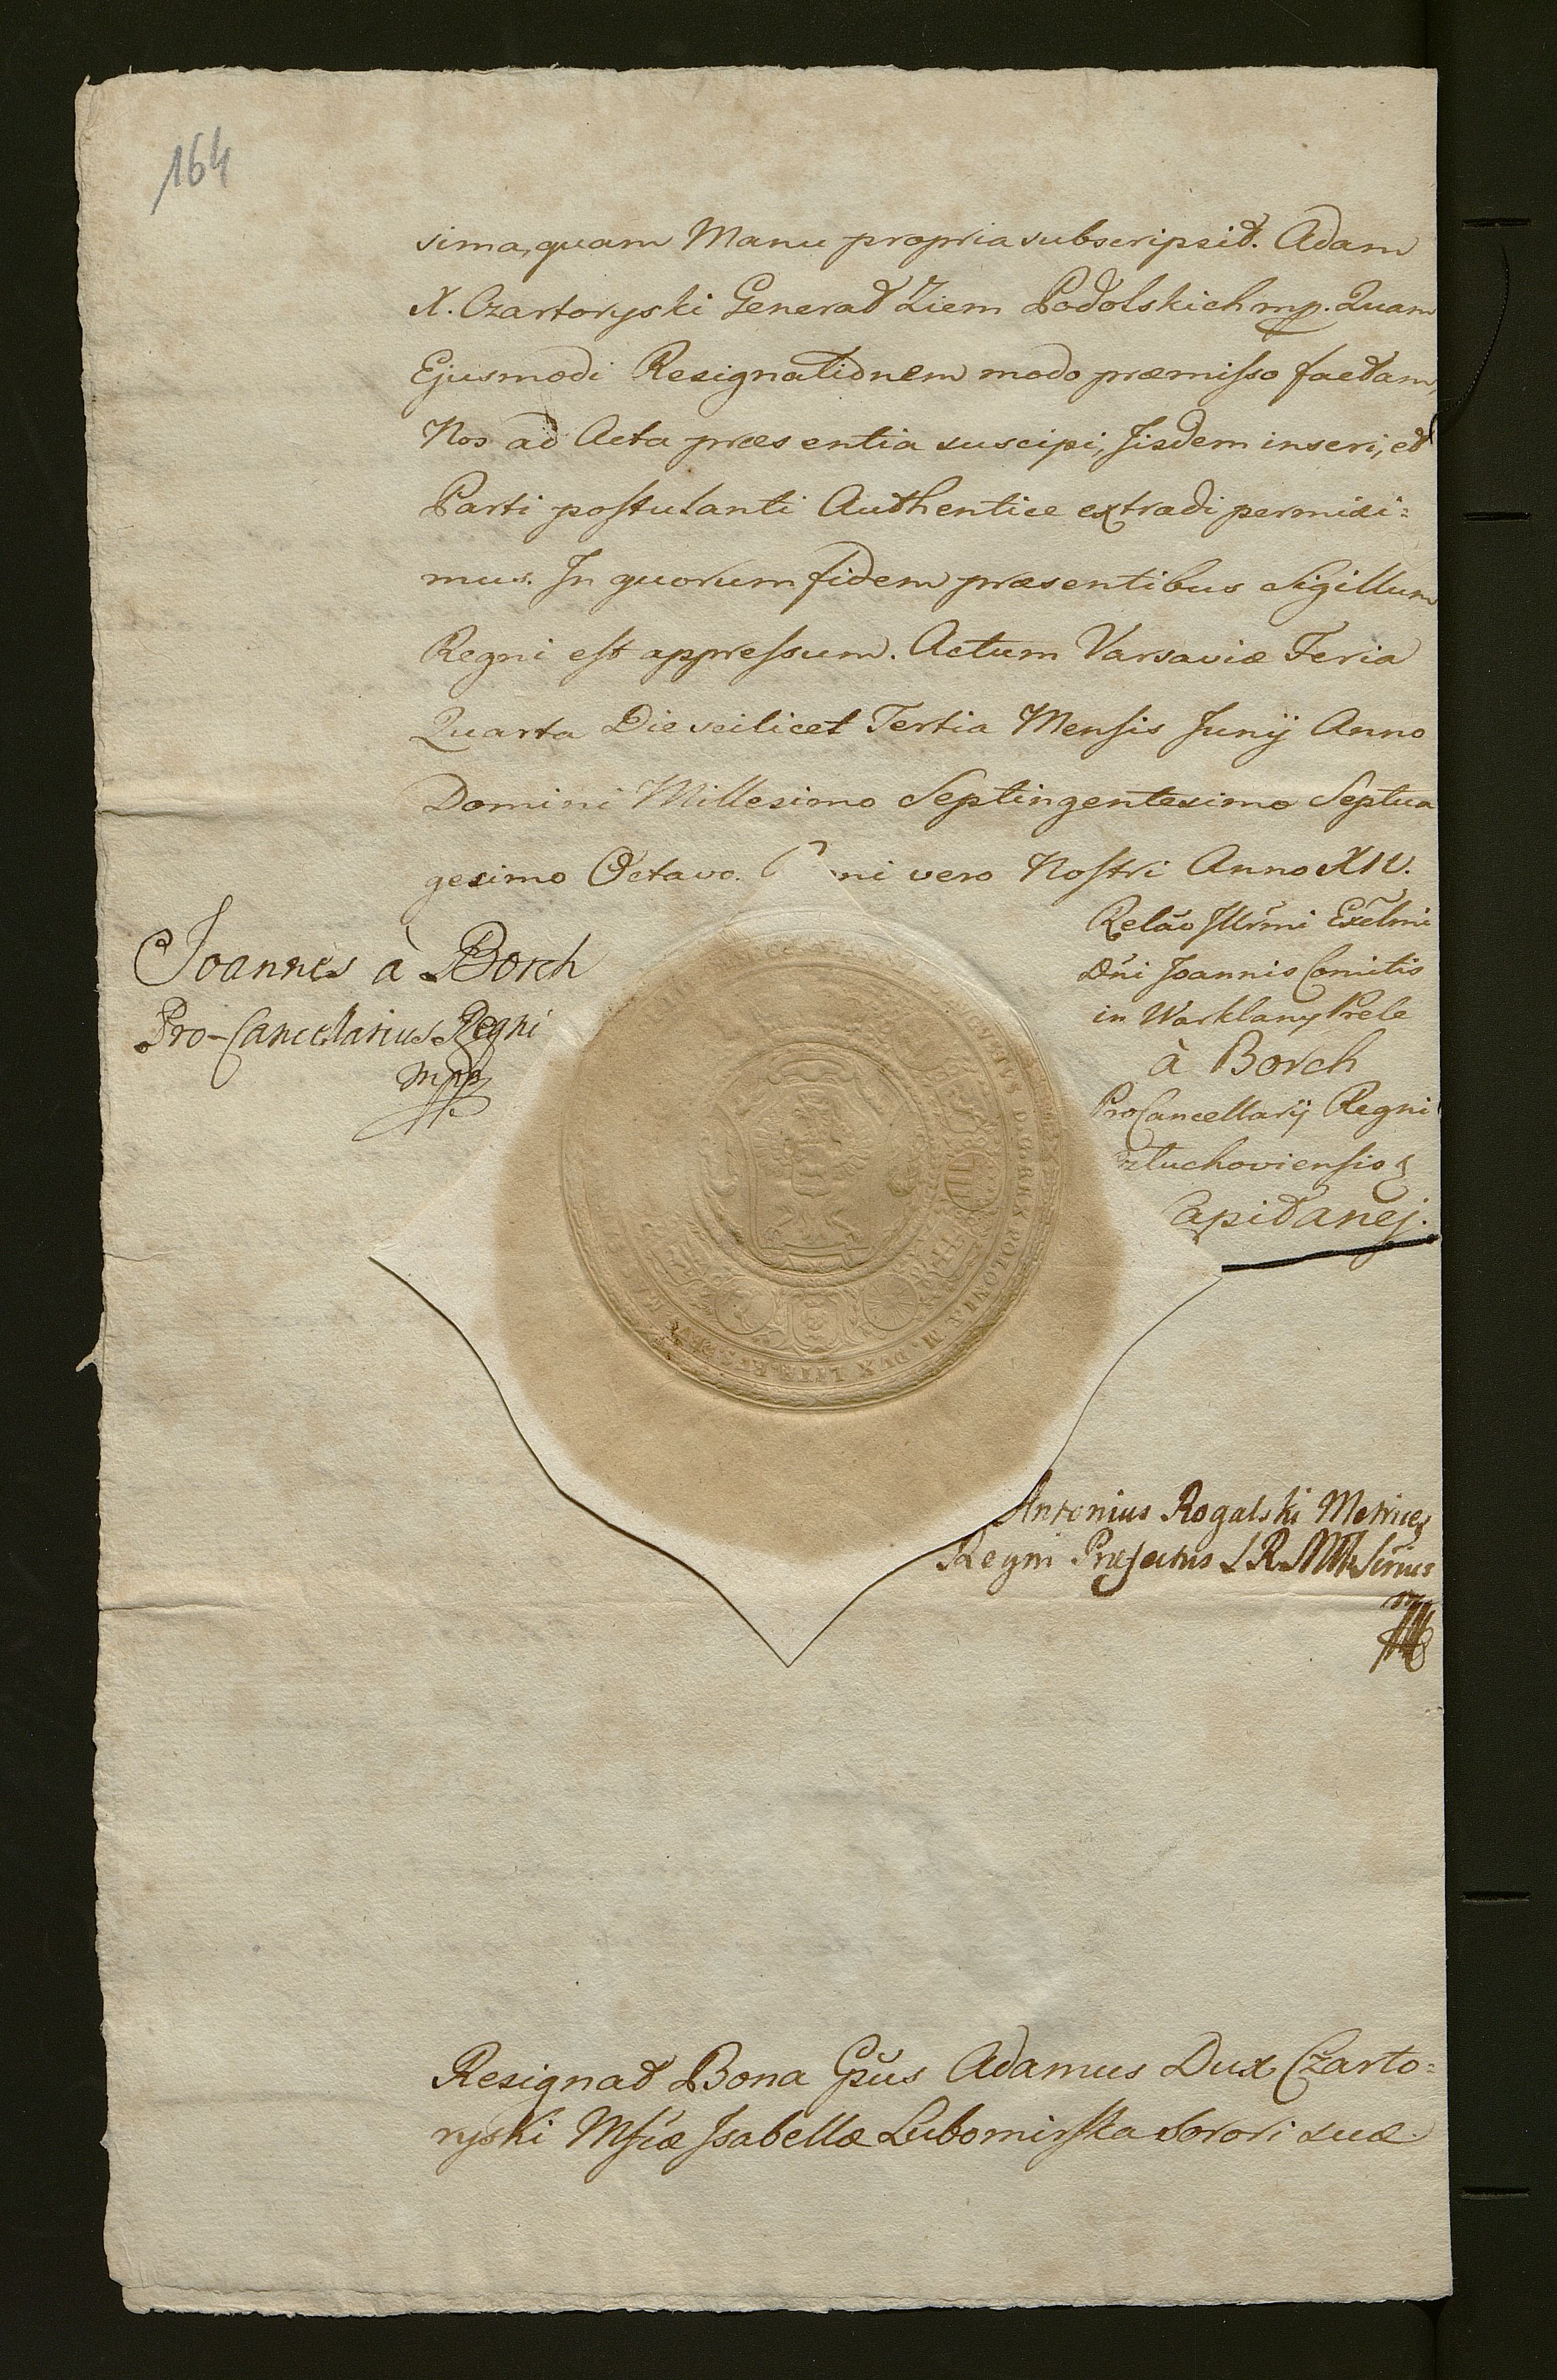 164
sima, quam Manu propria subscripsit. Adam
X. Czartoryski Generał Ziem Podolskich mp. Quam
Ejusmodi Resignationem modo præmisso factam,
Nos ad Acta præsentia suscipi, Jisdem inseri, et
Parti postulanti Authentice extradi permisi=
mus. In quorum fidem præsentibus Sigillum
Regni est appressum. Actum Varsaviæ Feria
Quarta Die scilicet Tertia Mensis Junij Anno
Domini Millesimo Septingentesimo Septua
gesimo Octavo. ni vero Nostri Anno XIV.
Joannes à Borch
Pro-Cancellarius Regni
mpp
Relão Jllrmi Exclmi
Dni Joannis Comitis
in Warklany Prele
à Borch
ProCancellarij Regni
tuchoviensis
Capitanej.
D.G. REX POLONIÆ M. DUX LITH.
Antonius Rogalski Metrices
Regni Præfectus S R M
Resignat Bona Gsus Adamus Dux Czarto=
ryski Mficæ Jsabellæ Lubomirska Sorori suæ.